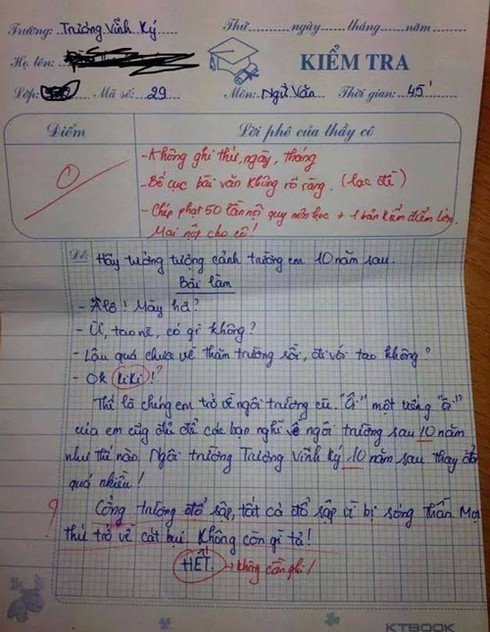 Trường: Trương Vĩnh Ký Thứ ngày tháng năm
Họ tên: KIỂM TRA
Lớp: Mã số: 29 Môn: Ngữ Văn Thời gian: 45'
Điểm Lời phê của thầy cô
0
- Không ghi thứ, ngày, tháng
- Bố cục bài văn không rõ ràng. (lạc đề)
- Chép phạt 50 lần nội quy môn học + 1 bản kiểm điểm lớn.
Mai nộp cho cô!
Đề: Hãy tưởng tượng cảnh trường em 10 năm sau.
Bài làm
- Alô! Mày hả?
- Ừ, tao nè, có gì không?
- Lâu quá chưa về thăm trường rồi, đi với tao không?
- Ok kiki!?
Thế là chúng em trở về ngôi trường cũ. "Ồ" một tiếng "ồ"
của em cũng đủ để các bạn nghĩ về ngôi trường sau 10 năm
như thế nào. Ngôi trường Trương Vĩnh Ký 10 năm sau thay đổi
quá nhiều!
? Cổng trường đổ sập, tất cả đổ sập vì bị sóng thần. Mọi
thứ trở về cát bụi. Không còn gì tả!
HẾT. → không cần ghi!
KTBOOK